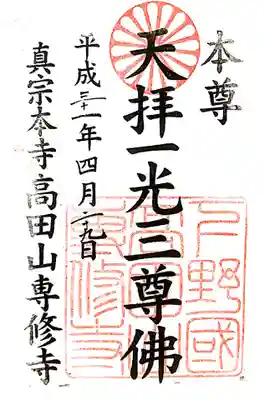 本尊
天拝一光三尊佛
平成三十一年四月二十九日
真宗本寺高田山専修寺
下野國
高田山
専修寺